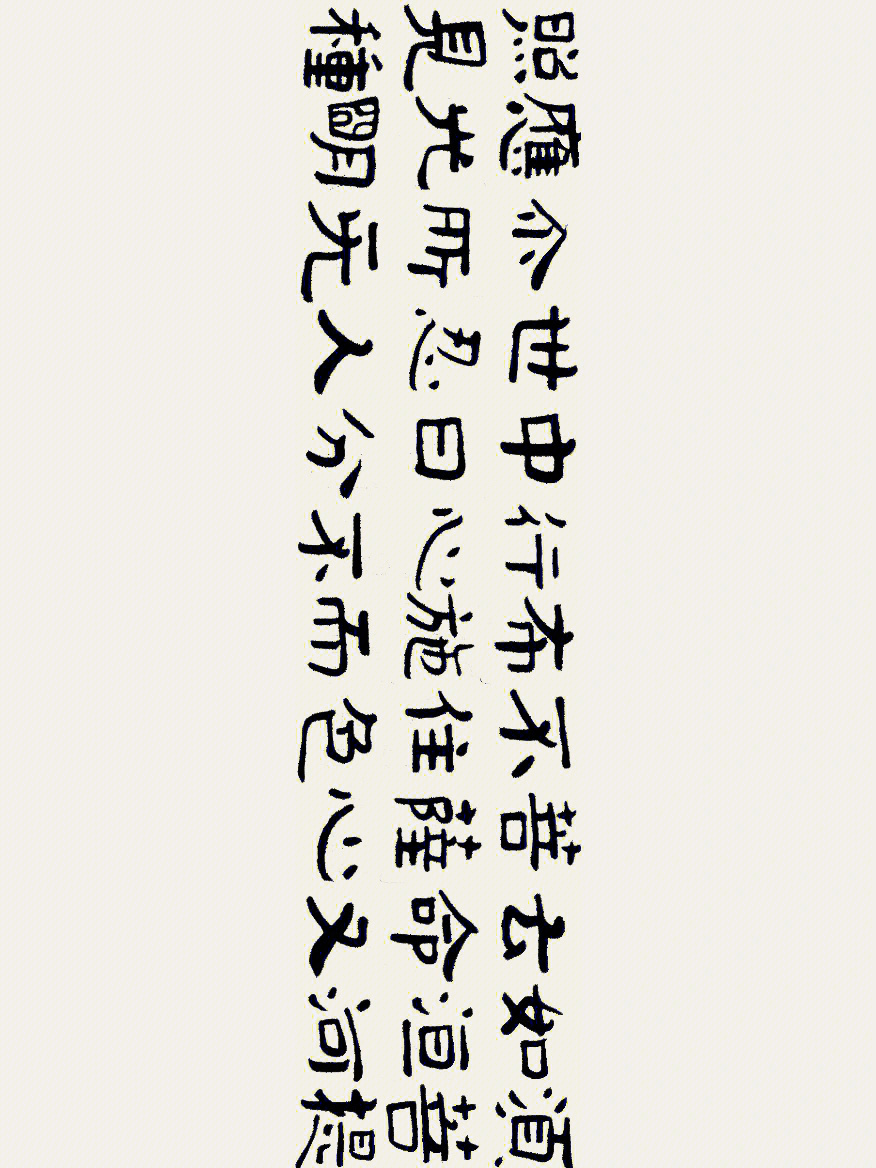 湏菩提
如洹河
去命又
菩薩心
不住色
布施而
行心不
中日分
世忍人
尒所无
應光明
照見種